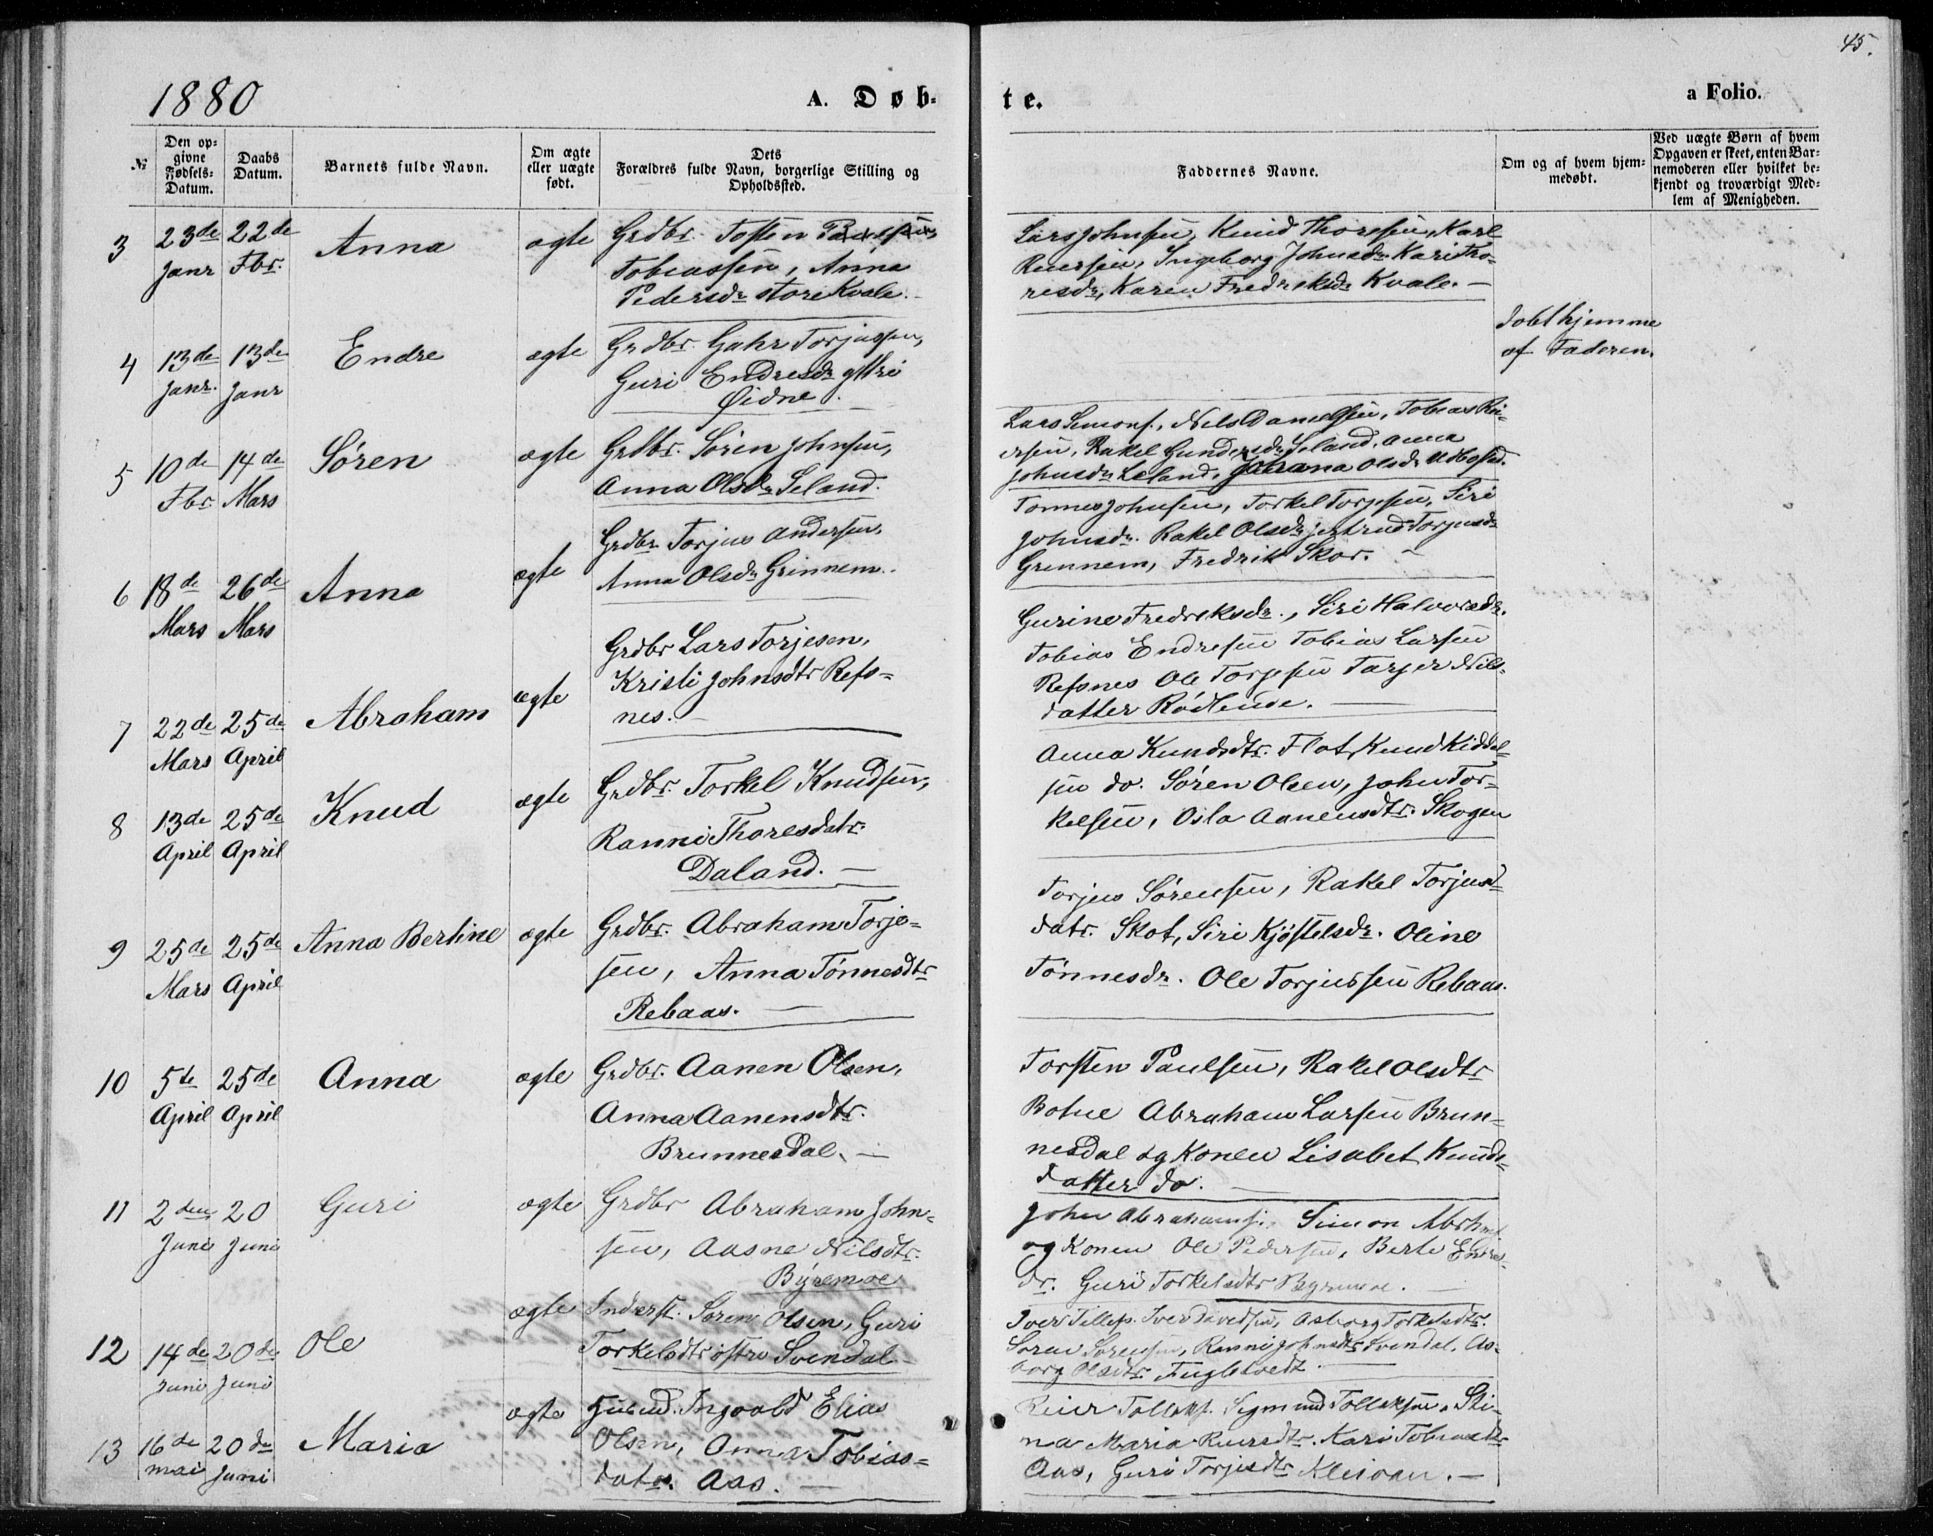 45.
1880
A. Døb-
te.
a Folio.
№
Den op-
givne
Fødsels-
Datum.
Daabs
Datum.
Barnets fulde Navn.
Om ægte
eller uægte
født.
Dets
Forældres fulde Navn, borgerlige Stilling og
Opholdssted.
Faddernes Navne.
Om og af hvem hjem-
medøbt.
Ved uægte Børn af hvem
Opgaven er skeet, enten Bar-
nemoderen eller hvilket be-
kjendt og troværdigt Med-
lem af Menigheden.
3
23de
Janr
22de
Fbr.
Anna
ægte
Grdbr. Tosten
Tobiassen, Anna
Pedersdr store Kvale.
Lars Johnsen, Knud Thoresen, Karl
Reiersen, Ingeborg Johnsdr Kari Tho-
resdr, Karen Fredriksdr Kvale. —
4
13de
Janr.
13de
Janr
Endre
ægte
Grdbr. Gahr Torjussen,
Guri Endresdr yttri
Øidne.
døbt hjemme
af Faderen.
5
10de
Fbr
14de
Mars
Søren
ægte
Grdbr. Søren Johnsen,
Anna Olsdr Seland.
Lars Simons., Nils Danielsen, Tobias Rei-
ersen, Rakel Gundersdr Seland, Anna
Johnsdr Leland, Olsdr
6
18de
Mars
26de
Mars
Anna
ægte
Grdbr Torjus Andersen,
Anna Olsdr Grinnem.
Tønnes Johnsen, Torkel Torjesen, Siri
Johnsdr. Rakel Olsdr Jertrud Torjusdr
Grennem, Fredrik Skar. —
7
22de
Mars
25de
April
Abraham
ægte
Grdbr Lars Torjesen,
Kristi Johnsdtr Refs-
nes. —
Gurine Fredriksdr., Siri Halvorsdr.
Tobias Endresen Tobias Larsen
Refsnes Ole Torjesen Tarjer Nils-
datter Rødlende. —
8
13de
April
25de
April
Knud
ægte
Grdbr. Torkel Knudsen,
Ranni Thoresdatr.
Daland. —
Anna Knudsdtr. Flat, Knud Kiddel-
sen do. Søren Olsen, John Tor-
kelsen, Osla Aanensdtr. Skogen
9
25de
Mars
25de
April
Anna Bertine
ægte
Grdbr. Abraham Torje-
sen, Anna Tønnesdtr
Rebaas. —
Torjus Sørensen, Rakel Torjus-
datr. Skot, Siri Kjøstelsdr. Oline
Tønnesdr. Ole Torjussen Rebaas.
10
5te
April
25de
April
Anna
ægte
Grdbr. Aanen Olsen,
Anna Aanensdtr.
Brunnesdal. —
Torsten Paulsen, Rakel Olsdtr
Botne Abraham Larsen Brun-
nesdal og Konen Lisabet Knuds-
datter do. —
11
2den
Juni
20
Juni
Guri
ægte
Grdbr Abraham John-
sen, Aasne Nilsdtr.
Byremoe
John Abrahams., Simon
og Konen Ole Pedersen, Berte Endres-
dr. Guri Torkelsdtr Byremoe. —
12
14de
Juni
20de
Juni
Ole
ægte
Inderst. Søren Olsen, Guri
Torkelsdtr østre Svendal
Iver Tillefs. Iver Davidsen, Asborg Torkelsdtr.
Søren Sørensen, Ranni Johnsdtr Svendal, As-
borg Olsdtr. Fugletvedt. —
13
16de
mai
20de
Juni
Maria
ægte
Ingvald Elias
Olsen, Anna Tobias-
datr. Aas. —
Reier Tollefs. Sigmund Tollefsen, Sti-
na Maria Reiersdtr. Kari Tobiasdtr
Aas, Guri Torjusdtr Kleivan. —